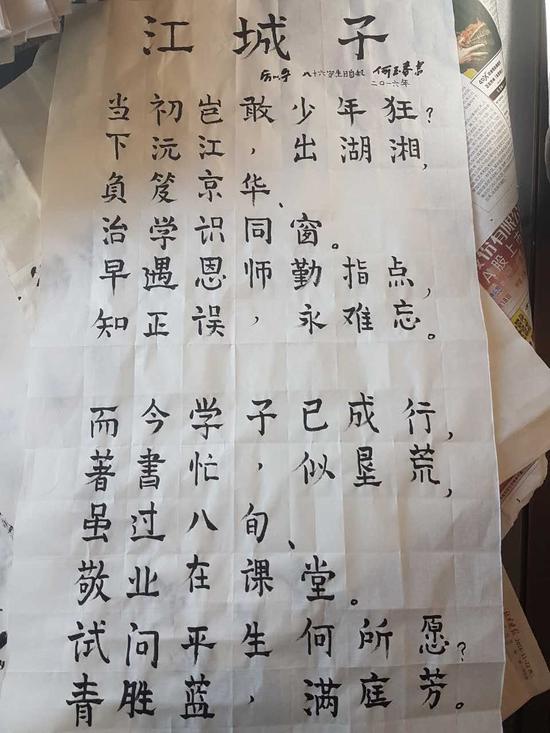 江城子
厉以宁 八十六岁生日自叙 何玉春书
二〇一六年
当初岂敢少年狂？
下沅江，出湖湘，
負笈京华、
治学识同窗。
早遇恩师勤指点，
知正误，永难忘。
而今学子已成行，
著书忙，似垦荒，
虽过八旬、
敬业在课堂。
试问平生何所愿？
青胜蓝，满庭芳。
A股上